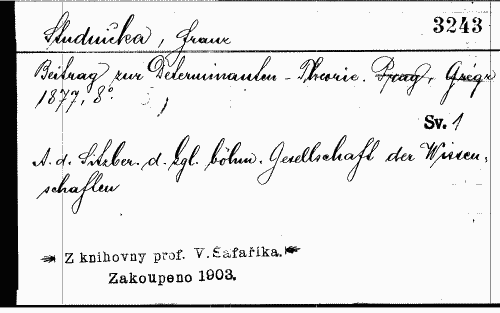 3243
Studnička, Franz
Beitrag zur Determinanten-Theorie. Prag, Grégr
1877, 8°.
Sv. 1
A. d. Sitzber. d. kgl. böhm. Gesellschaft der Wissen-
schaften
Z knihovny prof. V. Šafaříka.
Zakoupeno 1903.